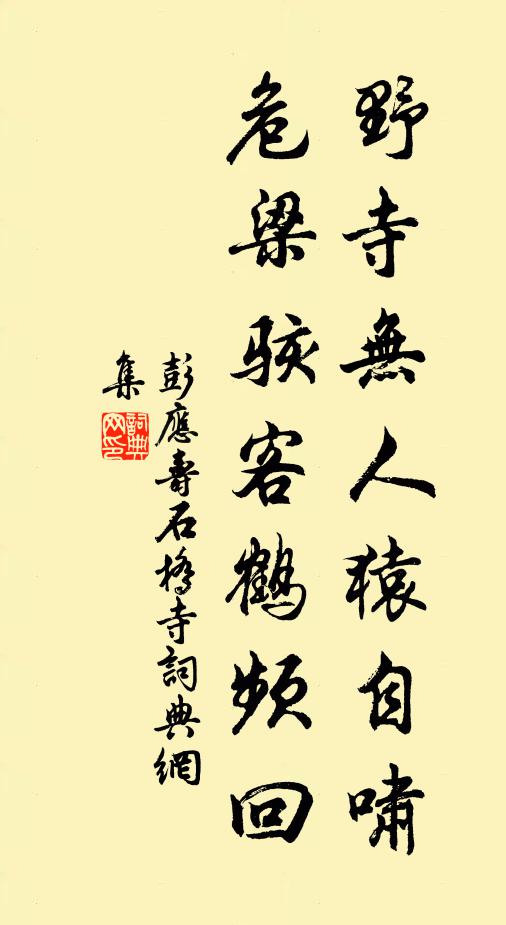 野寺無人猿自嘯
危梁駭客鶴頻回
彭應壽石橋寺詞典網
集
詞典
网印